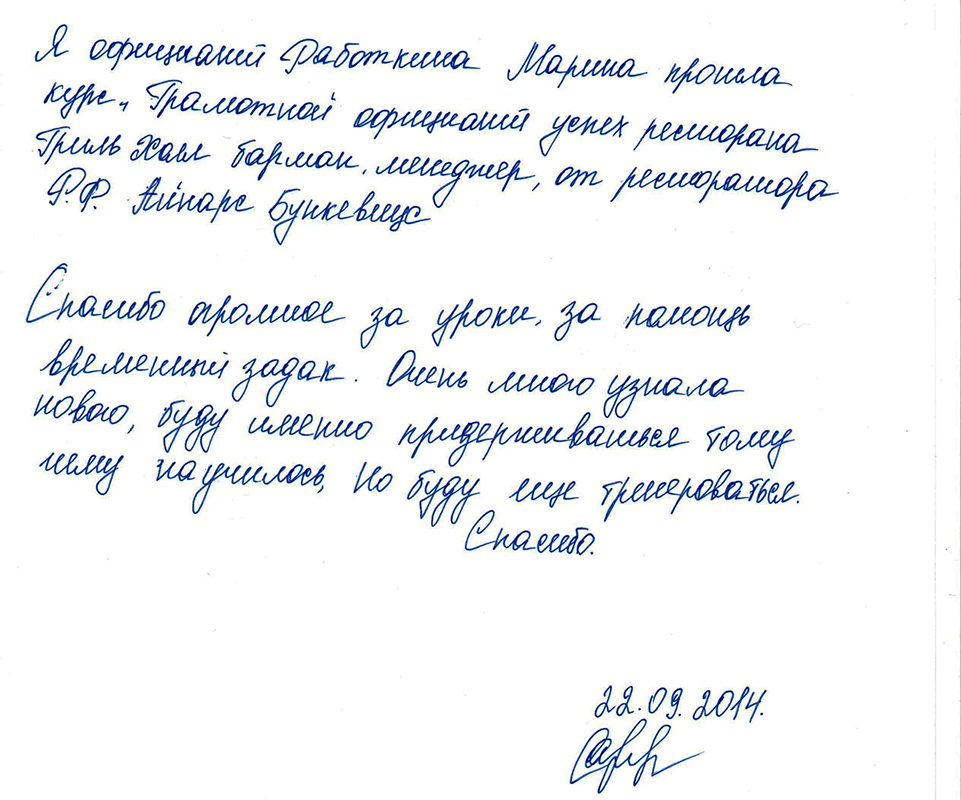 Я официант Работкина Марина прошла
курс „Грамотной официант успех ресторана
Гриль Холл бармак, менеджер, от ресторатора
Р.Ф. Айнарс Бункевицс
Спасибо огромное за уроки, за помощь
временный задак. Очень много узнала
нового, буду именно придерживаться тому
чему научилось, Но буду еще тренероваться.
Спасибо.
22.09.2014.